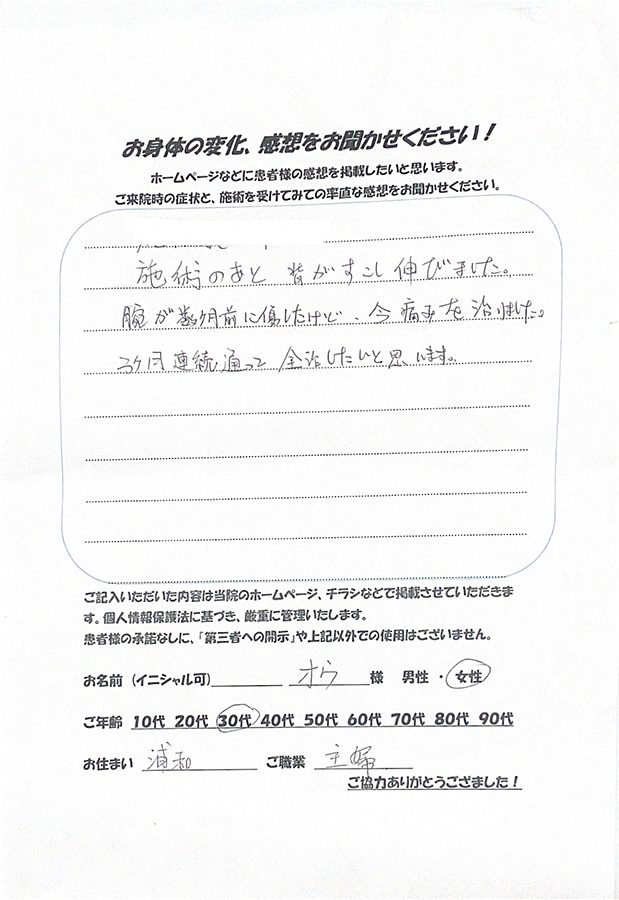 お身体の変化、感想をお聞かせください！
ホームページなどに患者様の感想を掲載したいと思います。
ご来院時の症状と、施術を受けてみての率直な感想をお聞かせください。
施術のあと 背がすこし伸びました。
腕が数ヶ月前に傷したけど、今痛みを治りました。
3ヶ月連続通って 全治したいと思います。
ご記入いただいた内容は当院のホームページ、チラシなどで掲載させていただきま
す。個人情報保護法に基づき、厳重に管理いたします。
患者様の承諾なしに、「第三者への開示」や上記以外での使用はございません。
お名前（イニシャル可） オウ 様 男性・女性
ご年齢 10代 20代 30代 40代 50代 60代 70代 80代 90代
お住まい 浦和 ご職業 主婦
ご協力ありがとうござました！